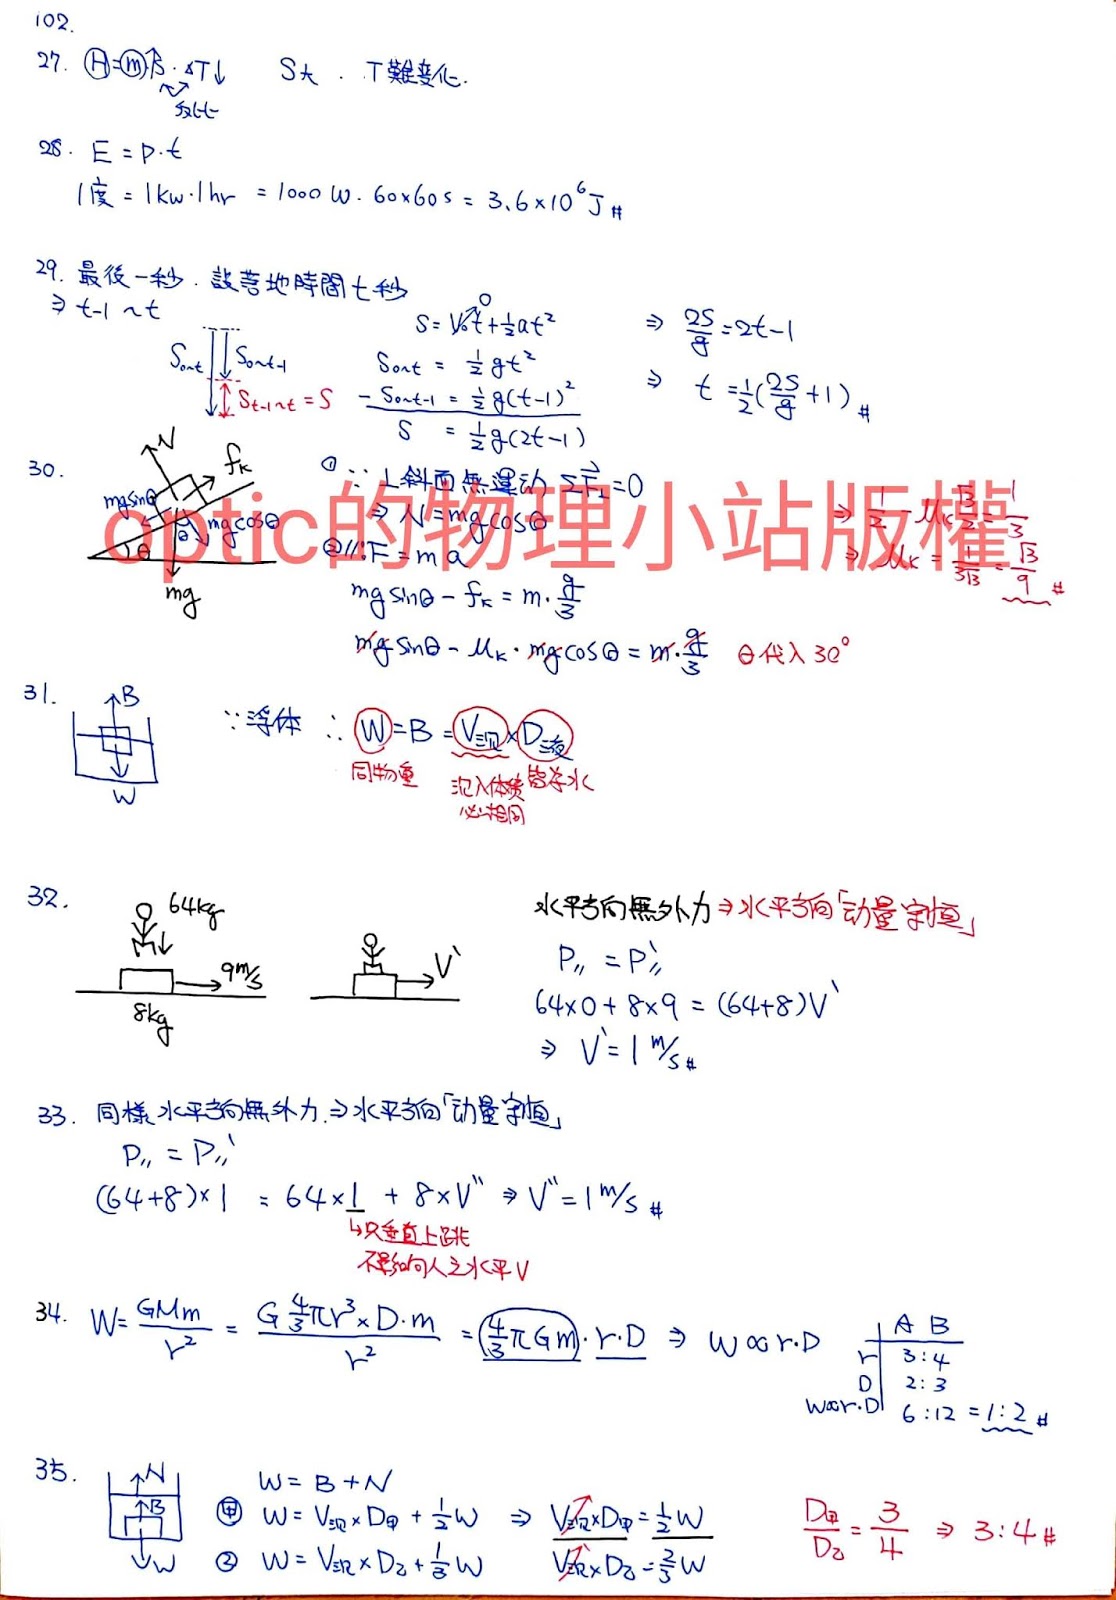 102.
27. H=m·s·ΔT↓ S大 . T難變化.
反比
28. E=P·t
1度=1kw·1hr =1000W·60×60s=3.6×10⁶J #
29. 最後一秒.設落地時間t秒
⇒ t-1~t
S=V₀t+½at² 0
⇒ 2S/g=2t-1
S0~t S0~t-1
S0~t = ½gt²
St-1~t=S
- S0~t-1=½g(t-1)²
⇒ t=½(2S/g+1) #
S =½g(2t-1)
30. N fk mgsinθ mgcosθ θ θ mg
① ∵⊥斜面無運動 ΣF⊥=0
⇒ N=mgcosθ
②//:F=ma
mgsinθ-fk=m·g/3
mgsinθ-μk·mgcosθ=m·g/3 θ代入30°
⇒ 1/2-μk√3/2=1/3
⇒ μk=1/3√3=√3/9 #
optic的物理小站版權
31. B W
∵浮体 ∴ W=B=V沉×D液
同物重 沉入体積 皆為水
必相同
32. 64kg 9m/s 8kg V`
水平方向無外力⇒水平方向「动量守恒」
P// =P`//
64×0+8×9=(64+8)V`
⇒ V`=1m/s #
33. 同樣水平方向無外力.⇒水平方向「动量守恒」
P// =P//`
(64+8)×1 =64×1 + 8×V`` ⇒ V``=1m/s #
↳只垂直上跳
不影响人之水平V
34. W=GMm/r² = G 4/3πr³×D·m/r² =(4/3πGm)·r·D ⇒ W∝r·D
A B
r 3:4
D 2:3
W∝r·D 6:12=1:2 #
35. N B W
W=B+N
甲 W=V沉×D甲+½W ⇒ V沉×D甲=½W
② W=V沉×D乙+⅓W V沉×D乙=⅔W
D甲/D乙=3/4 ⇒ 3:4 #